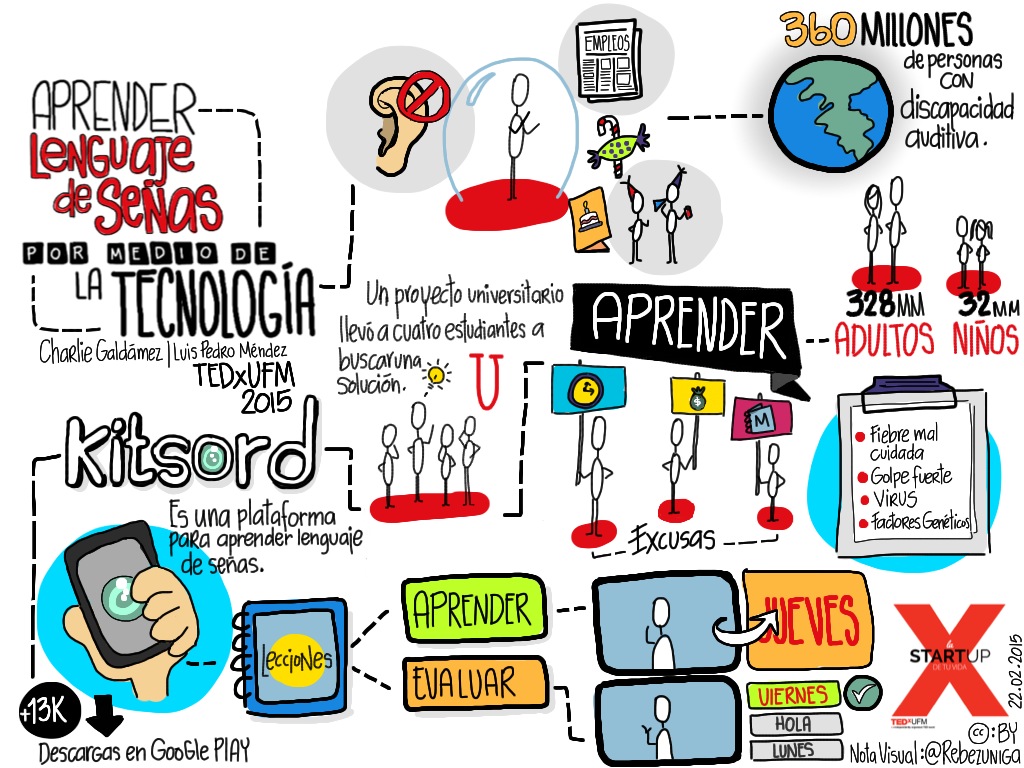 APRENDER
LENGUAJE
de SEÑAS
POR MEDIO DE
LA TECNOLOGÍA
Charlie Galdámez | Luis Pedro Méndez
TEDxUFM
2015
EMPLEOS
360 MILLONES
de personas
CON
discapacidad
auditiva.
328MM
ADULTOS
32MM
NIÑOS
Un proyecto universitario
llevó a cuatro estudiantes a
buscar una
solución.
U
APRENDER
$
M
EXCUSAS
Fiebre mal
cuidada
Golpe fuerte
Virus
Factores Genéticos
Kitsord
Es una plataforma
para aprender lenguaje
de señas.
+13K
Descargas en Google PLAY
Lecciones
APRENDER
EVALUAR
JUEVES
VIERNES
HOLA
LUNES
X
STARTUP
DE TU VIDA
TEDxUFM
22.02.2015
cc:BY
Nota Visual:@Rebezuniga